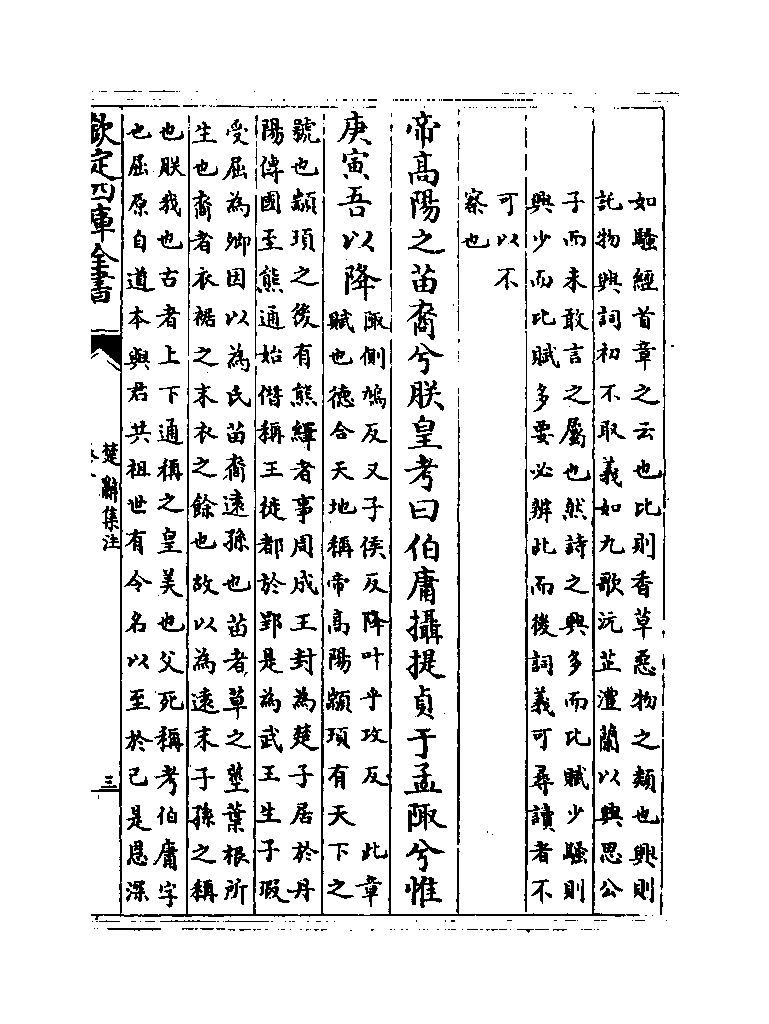 如騷經首章之云也比則香草惡物之類也興則
託物興詞初不取義如九歌沅芷澧蘭以興思公
子而未敢言之屬也然詩之興多而比賦少騷則
興少而比賦多要必辨此而後詞義可尋讀者不
可以不
察也
帝高陽之苗裔兮朕皇考曰伯庸攝提貞于孟陬兮惟
庚寅吾以降
陬側鳩反又子侯反降叶乎攻反 此章
賦也德合天地稱帝高陽顓頊有天下之
號也顓頊之後有熊繹者事周成王封為楚子居於丹
陽傳國至熊通始僭稱王徙都於郢是為武王生子瑕
受屈為卿因以為氏苗裔遠孫也苗者草之莖葉根所
生也裔者衣裾之末衣之餘也故以為遠末子孫之稱
也朕我也古者上下通稱之皇美也父死稱考伯庸字
也屈原自道本與君共祖世有令名以至於已是恩深
欽定四庫全書
楚辭集注
三